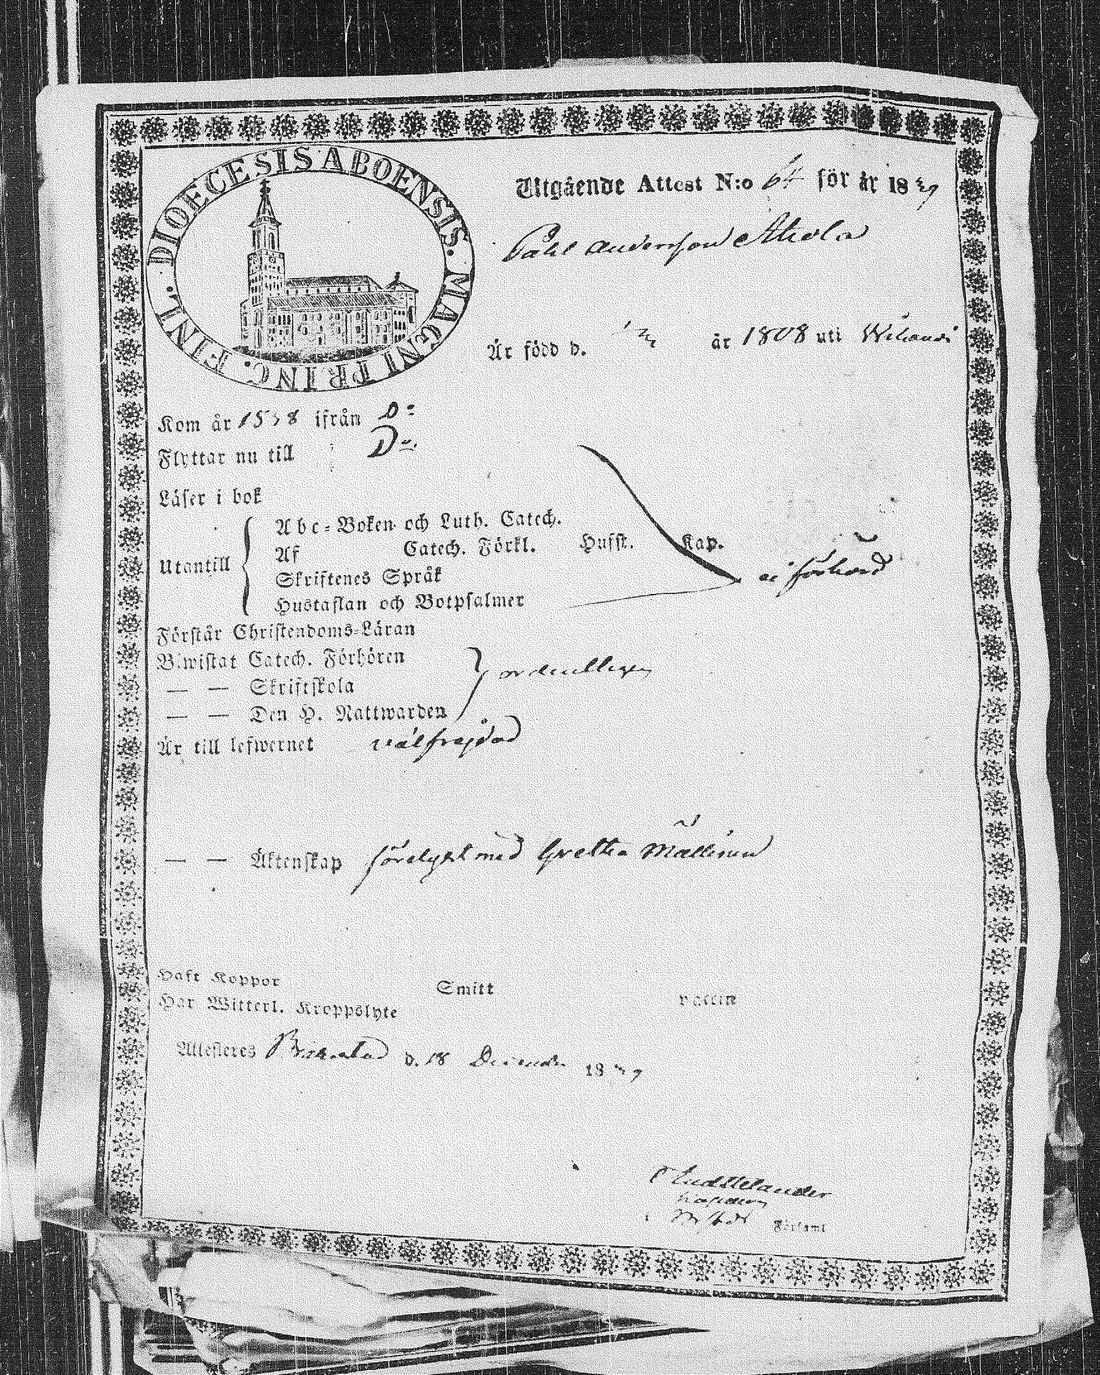 DIOECESIS ABOENSIS. MAGNI PRINC. FINL.
Utgående Attest N:o 64 för år 18
Påhl Andersson Ahola
Är född d. år 1808 uti
Kom år 1538 ifrån D:o
Flyttar nu till D:o
Läser i bok
Utantill
Abc-Boken och Luth. Catech.
Af Catech. Förkl. Husst. Kap.
Skriftenes Språk
Hustaflan och Botpsalmer
ej förhörd
Förstår Christendoms-Läran
Biwistat Catech. Förhören
— — Skriftskola
— — Den H. Nattwarden
ordentligen
Är till lefwernet välfrejdad
— — Äktenskap förelyst med Gretha
Haft Koppor Smitt vaccin
Har Witterl. Kroppslyte
Attesteras d. 18 December 18
Församl